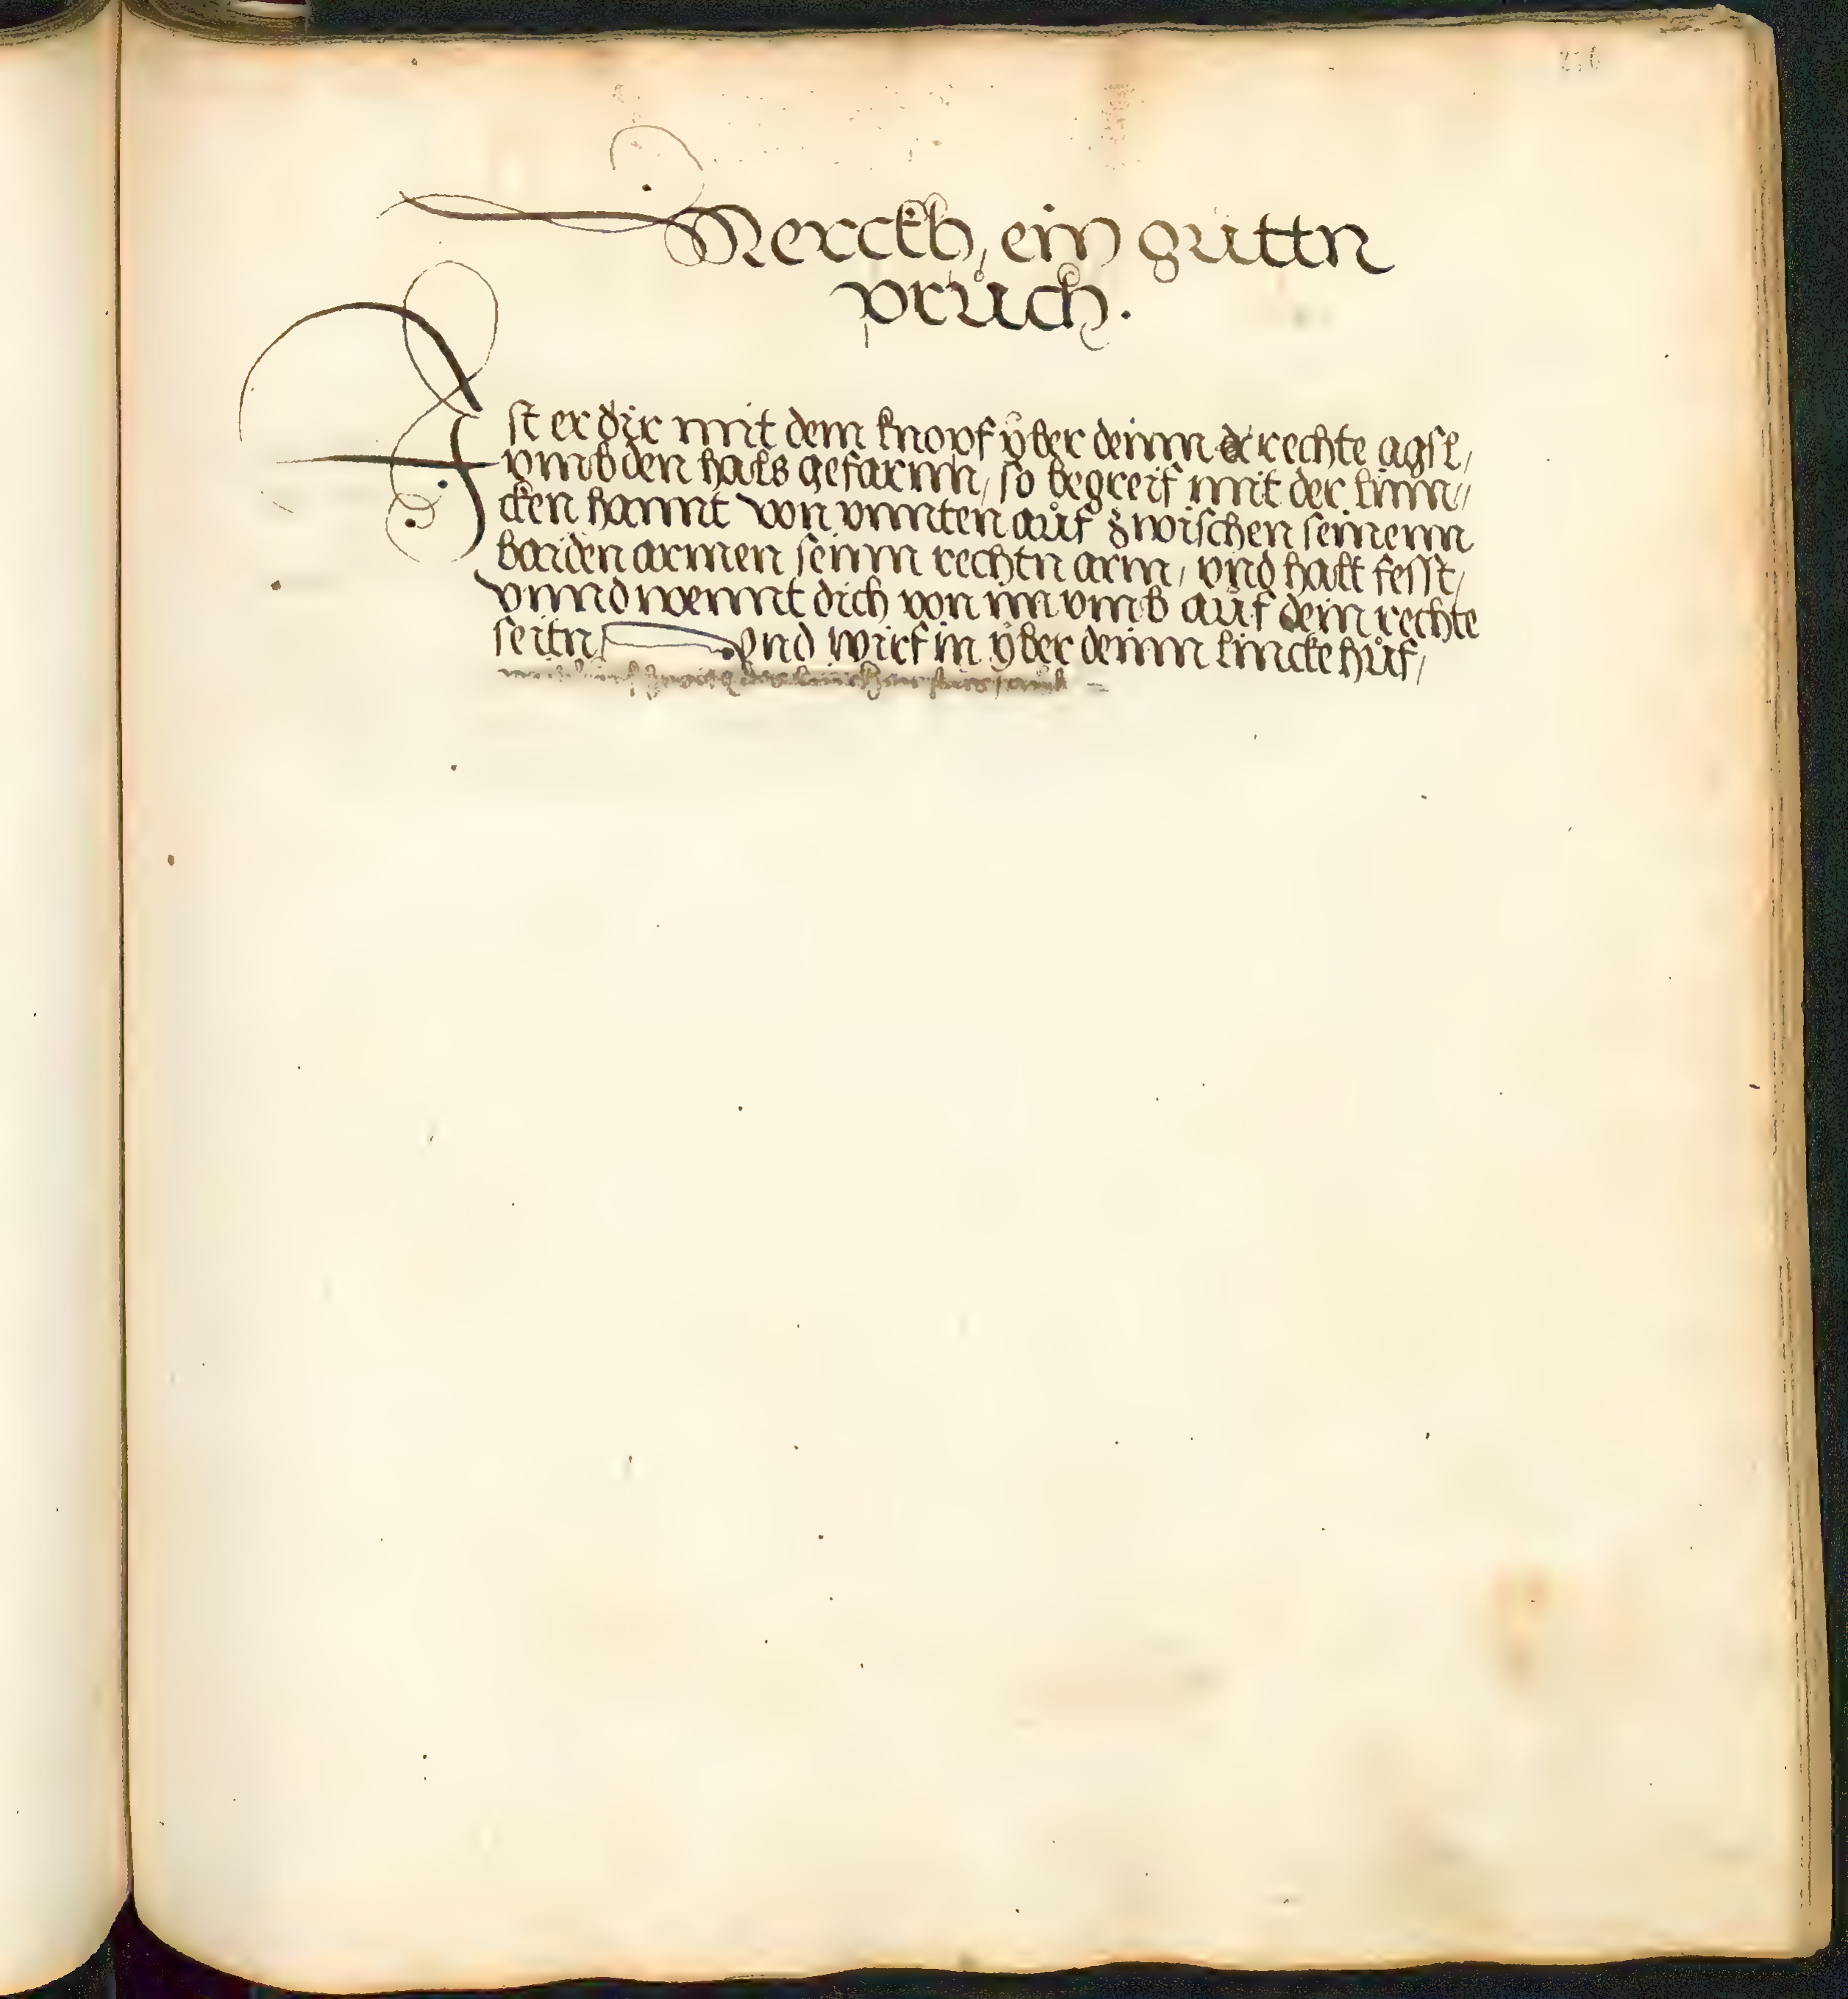 Merckh, ein guttn
průch.
Ist er dir mit dem knopf ÿber deinm rechte agsl,
vmb den hals gefarnn, so begreif mit der linn,,
cken hannt von vnnten aůf zwischen seinenn
baiden armen seinm rechtn arm, vnd halt fesst,
vnnd wennt dich von im vmb aůf dein rechte
seitn, vnd wirf in ÿber deinm lincke hůf,